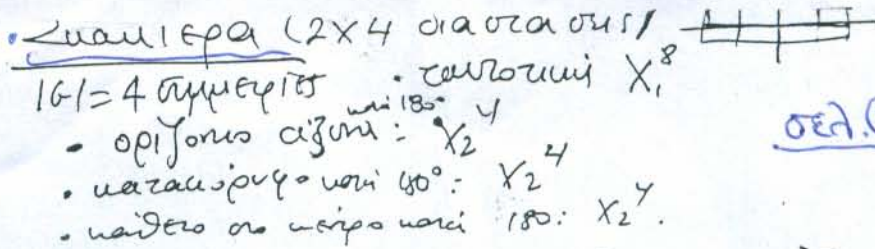 · Σκακιέρα (2×4 διαστάσεις)
|G|=4 συμμετρίες · ταυτοτική X₁⁸
· οριζόντιο άξονα κατά 180°: X₂⁴
σελ.(
· κατακόρυφο κατά 180°: X₂⁴
· κάθετο στο κέντρο κατά 180: X₂⁴.